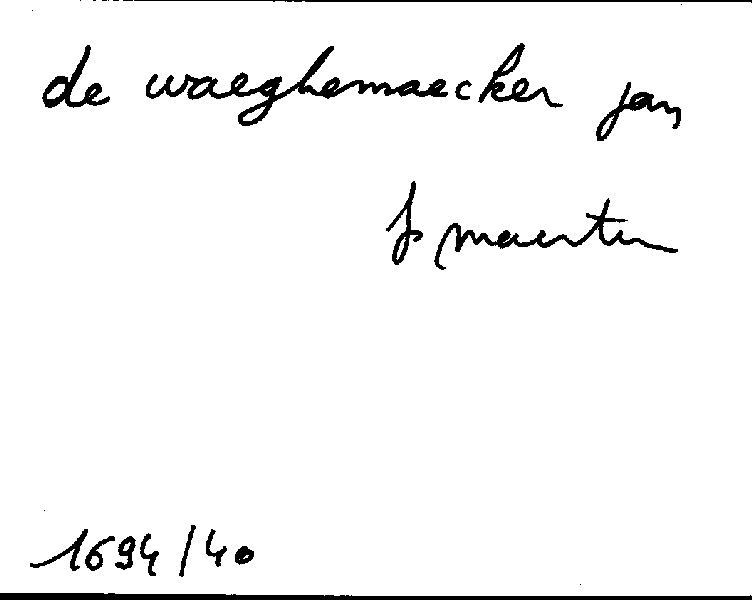 de waeghemaecker jan
fs maerten
1694/40